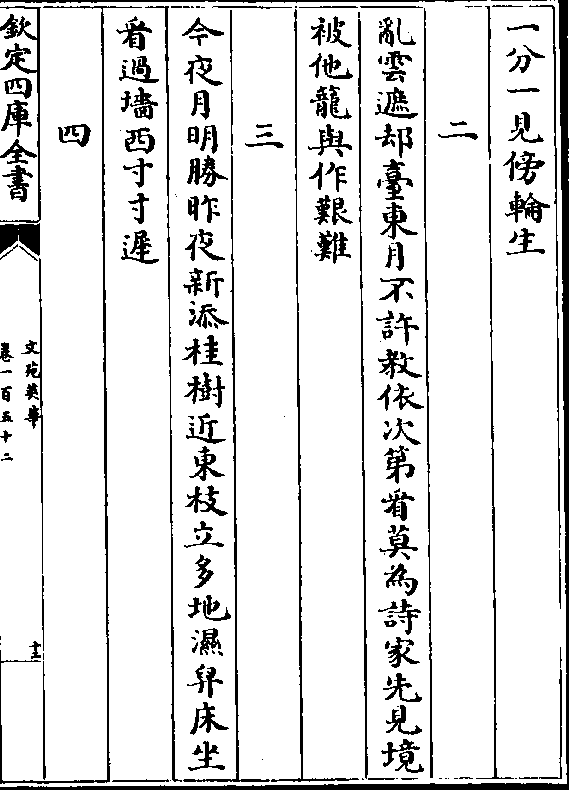 一分一見傍輪生
二
亂雲遮却臺東月不許教依次第看莫為詩家先見境
被他籠與作艱難
三
今夜月明勝昨夜新添桂樹近東枝立多地濕舁床坐
看過墻西寸寸遲
四
欽定四庫全書
文苑英華
卷一百五十二
十三